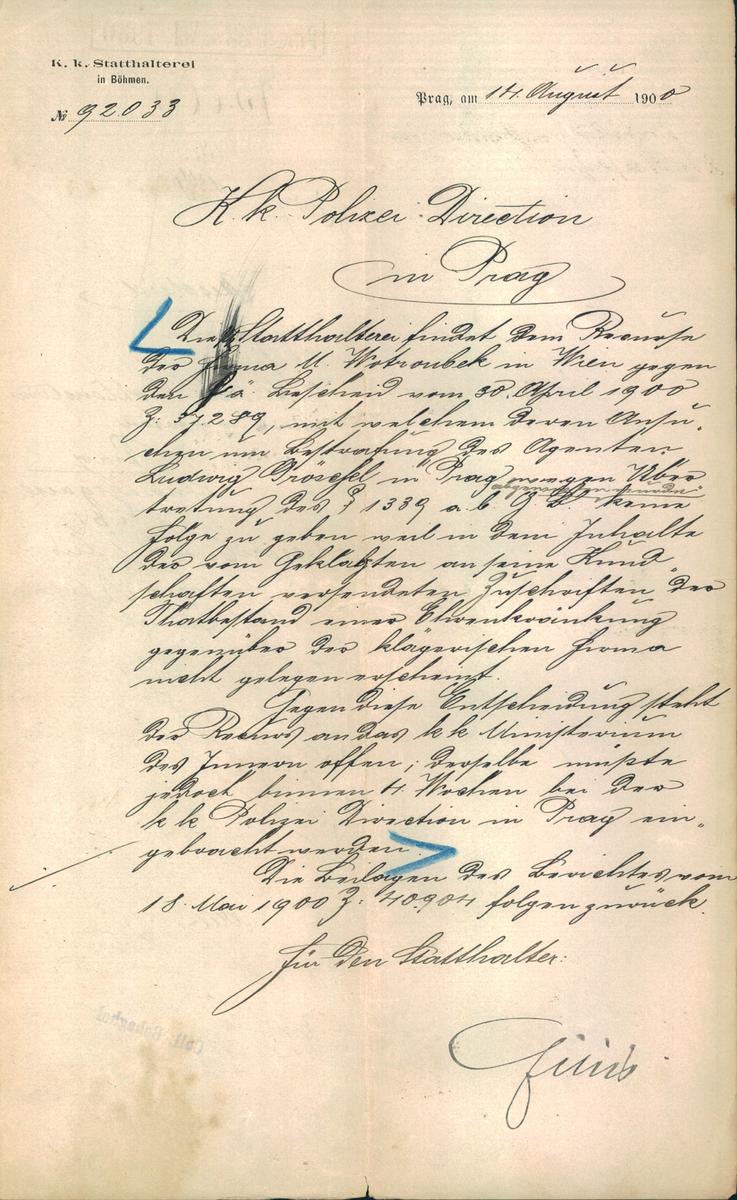 K. k. Statthalterei
in Böhmen.
№ 92033
Prag, am 14. August 1900
K. k. Polizei-Direction
in Prag
Die Statthalterei findet dem Recurse
der Firma M. Wotroubek in Wien gegen
den Bescheid vom 30. April 1900
Z. 37289, mit welchem deren Ansu-
chen um Bestrafung des Agenten
Ludwig in Prag wegen Über
abgewiesen wurde
tretung des § 1339 a. b. G. B. keine
Folge zu geben weil in dem Inhalte
der vom Geklagten an seine Kund
schaften versendeten Zuschriften der
Thatbestand einer Ehrenkränkung
gegenüber der klägerischen Firma
nicht gelegen erscheint.
Gegen diese Entscheidung steht
der Recurs an das k k Ministerium
des Innern offen; derselbe müßte
jedoch binnen 4 Wochen bei der
k k Polizei Direction in Prag ein„
gebracht werden.
Die Beilagen des Berichtes vom
18. Mai 1900 Z. 40904 folgen zurück.
Für den Statthalter: